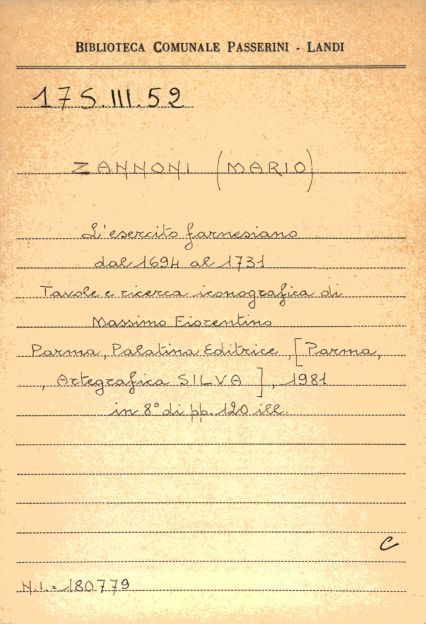 BIBLIOTECA COMUNALE PASSERINI - LANDI
175.III.52
ZANNONI (MARIO)
L'esercito farnesiano
dal 1694 al 1731
Tavole e ricerca iconografica di
Massimo Fiorentino
Parma, Palatina Editrice, [Parma,
, Artegrafica SILVA], 1981
in 8° di pp. 120 ill.
C
N.I. = 180779